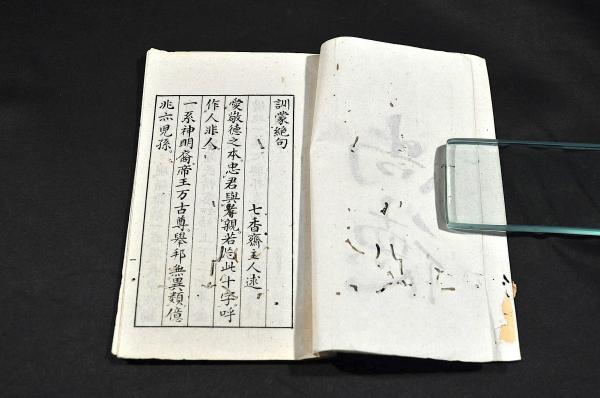 訓蒙絶句
七香齋主人述
愛敬德之本忠君與孝親若忘此十字呼
作人非人
一系神明裔帝王万古尊。擧邦無異類億
兆亦児孫。